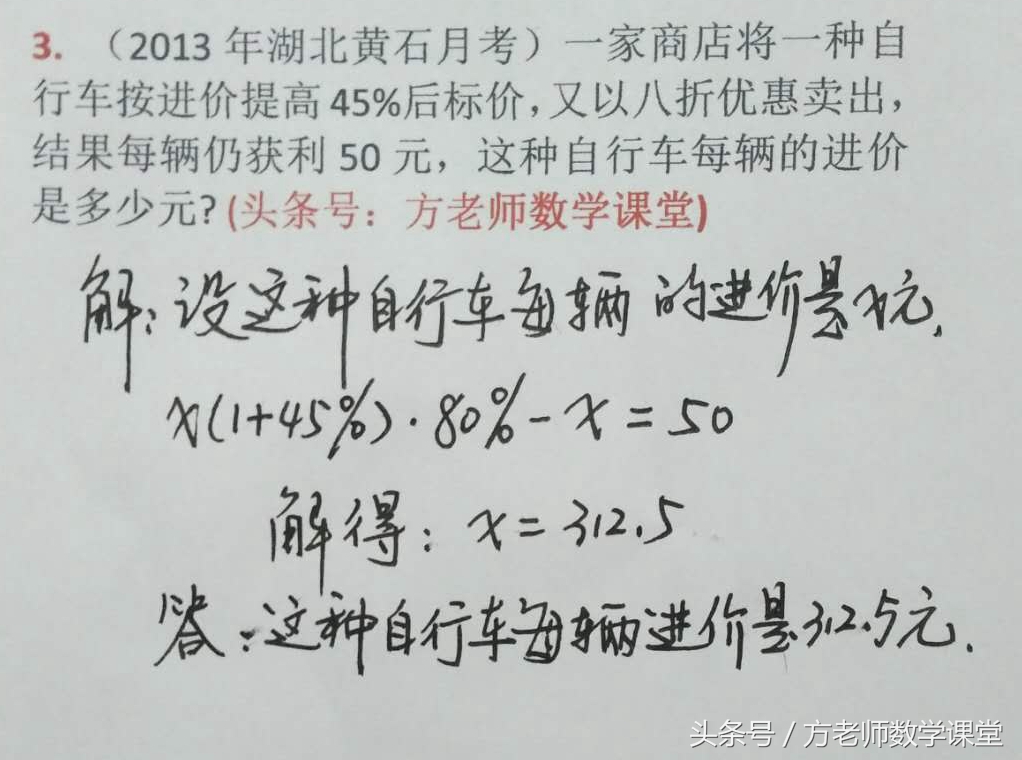 3. （2013 年湖北黄石月考）一家商店将一种自
行车按进价提高 45%后标价，又以八折优惠卖出，
结果每辆仍获利 50 元，这种自行车每辆的进价
是多少元? (头条号：方老师数学课堂)
解：设这种自行车每辆的进价是x元.
x(1+45%)·80%-x=50
解得：x=312.5
答：这种自行车每辆进价是312.5元.
头条号 / 方老师数学课堂